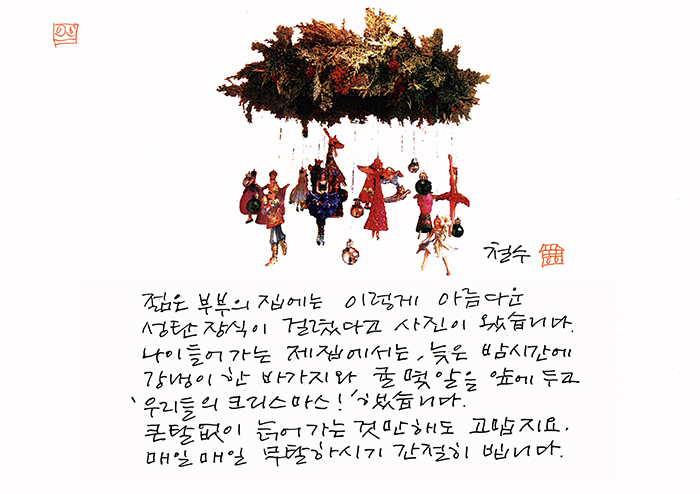 철수
젊은 부부의 집에는 이렇게 아름다운
성탄장식이 걸렸다고 사진이 왔습니다.
나이들어가는 제집에서는, 늦은 밤시간에
강냉이 한 바가지와 귤 몇알을 앞에 두고
'우리들의 크리스마스!' 했습니다.
큰탈없이 늙어가는것만해도 고맙지요.
매일매일 무탈하시기 간절히 빕니다.